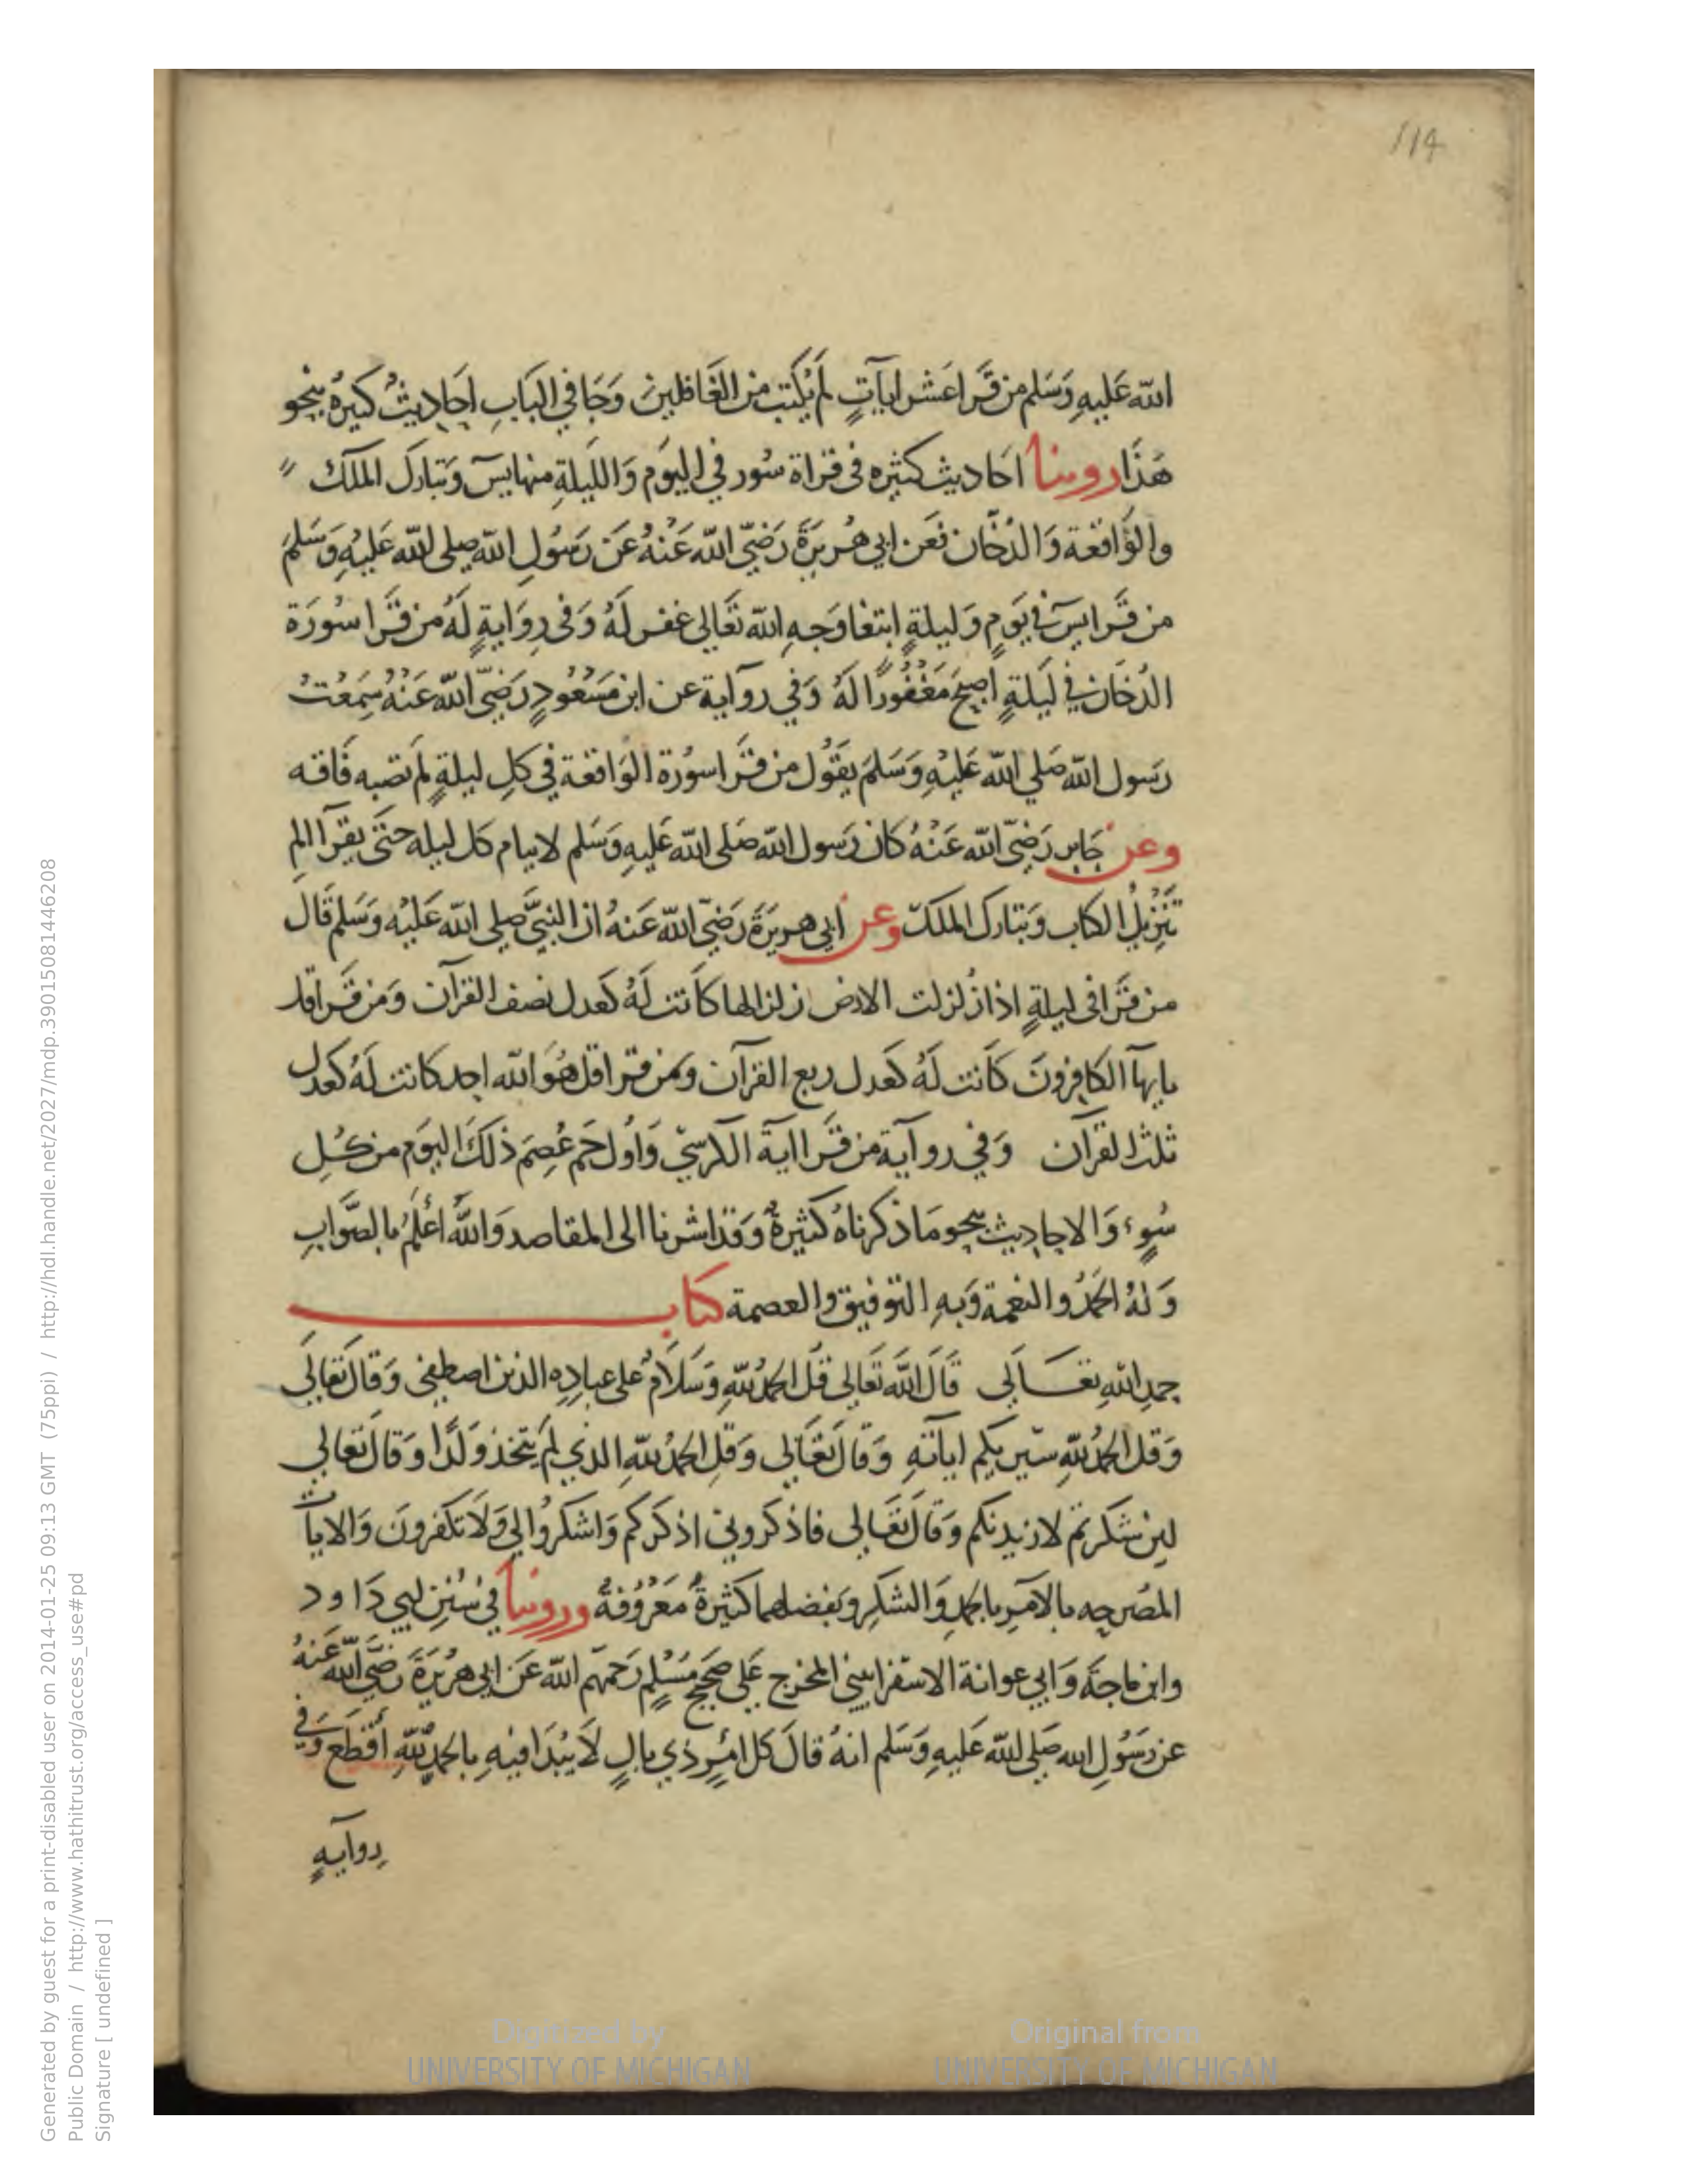 114
الله عَليهِ وَسَلم من قَرا عَشر ايآتٍ لم يُكتب من الغَافلين وَجَا في البَابِ احَاديثُ كثيرةٌ بنحو
هَذا روينا احَاديث كثيره فى قراة سُور في اليوَم وَالليلَةِ منها يسَ وَتبارك الملك
والوَاقعة وَالدُخان فعَن ابي هُريرَةَ رَضيّ الله عَنهُ عَن رَسُولِ الله صلى الله عَليهِ وَسَلمَ
من قَرا يسَ في يَومٍ وَليلةٍ ابتغا وَجهِ الله تَعَالي غفر لَهُ وَفى رِوَايةٍ لَهُ من قَرا سُورَة
الدُخَان في لَيلةٍ اصبحَ مَغفُورًا لَهُ وَفي روآية عن ابن مَسْعُودٍ رَضيّ الله عَنهُ سَمعْتُ
رَسول الله صَلي الله عَليهِ وَسَلمَ يقَوُل من قرا سورُة الوَاقعة في كلِ ليلةٍ لَم تصبه فَاقه
وعن جَابر رَضيّ الله عَنْهُ كان رَسول الله صَلى الله عَليهِ وَسَلم لا ينام كل ليله حتَى يقرآ الم
تَنزيلُ الكتاب وَتبارك الملكَ وعن ابي هريرَةَ رَضيّ الله عَنهُ ان النبيَّ صلى الله عَليهِ وَسَلم قَال
من قَرا فى ليلةٍ اذا زُلزلت الارض زلزالها كانَت لَهُ كَعدل نصف القرآن وَمن قَرا قل
يايهآ الكافِرونَ كانَت لَهُ كَعدل ربع القرآن وَمن قرا قل هُوَ الله احد كانت لَهُ كعدل
ثلث القرآن وَفي روآية من قَرا اية الكرسيّ وَاوُل حَم عُصِمَ ذلكَ اليَوم من كُلِ
سُوءٍ وَالاحاديث بنحو مَا ذكرناهُ كثيرةٌ وَقد اشرنا الى المقاصد وَاللهُ اعْلَمُ بالصَّوابِ
وَلهُ الحَمدُ والنعمة وَبهِ التوفيق والعصمة كتاب
حمدِ اللهِ تعَالَي قَالَ اللهُ تَعَالى قُل الحمدُ للهِ وَسَلاَمٌ على عبادِه الذين اصطفى وَقالَ تَعَالَي
وَقل الحمدُ للهِ سَيريكم اياتهِ وَقَالَ تَعَالى وَقل الحمدُ للهِ الذي لَم يَتخذ وَلَدًا وَقالَ تعَالي
لين شَكرتم لازيدنكم وَقالَ تعَالى فاذكروني اذكركم وَاشكروُا لي وَلاَ تكفرونَ وَالايآت
المصَرحه بالآمرِ بالحمدِ وَالشكرِ وَبفضلهما كثيرةٌ مَعْرُوفةٌ وروينا في سُنن ابي دَاود
وابن مَاجَةَ وَابي عوانة الاسفرايينى المخرج عَلي صحيح مُسْلمٍ رَحمَهم الله عَن ابي هُريْرَةَ رَضيَّ الله عَنهُ
عن رَسُولِ الله صَلي الله عَليهِ وَسَلم انهُ قالَ كل امْرٍ ذي بالٍ لاَ يُبْدَا فيهِ بالحمدُ للهِ أقطَع وَفي
رِوآيهٍ
Generated by guest for a print-disabled user on 2014-01-25 09:13 GMT (75ppi) / http://hdl.handle.net/2027/mdp.39015081446208
Public Domain / http://www.hathitrust.org/access_use#pd
Signature [ undefined ]
Digitized by
UNIVERSITY OF MICHIGAN
Original from
UNIVERSITY OF MICHIGAN